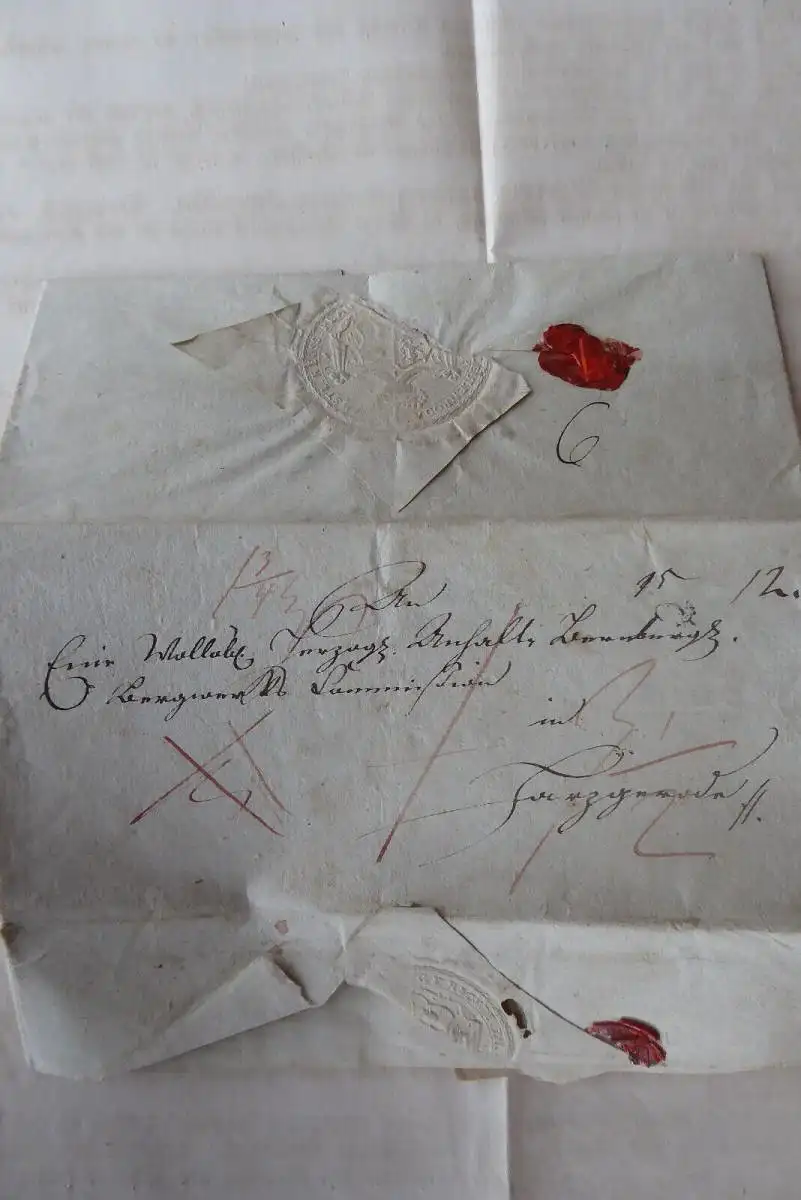 6
An
15 12.
Eine Wollöbl. Herzogl. Anhalt. Bernburgs.
Bergwerks Commission
in
Harzgerode